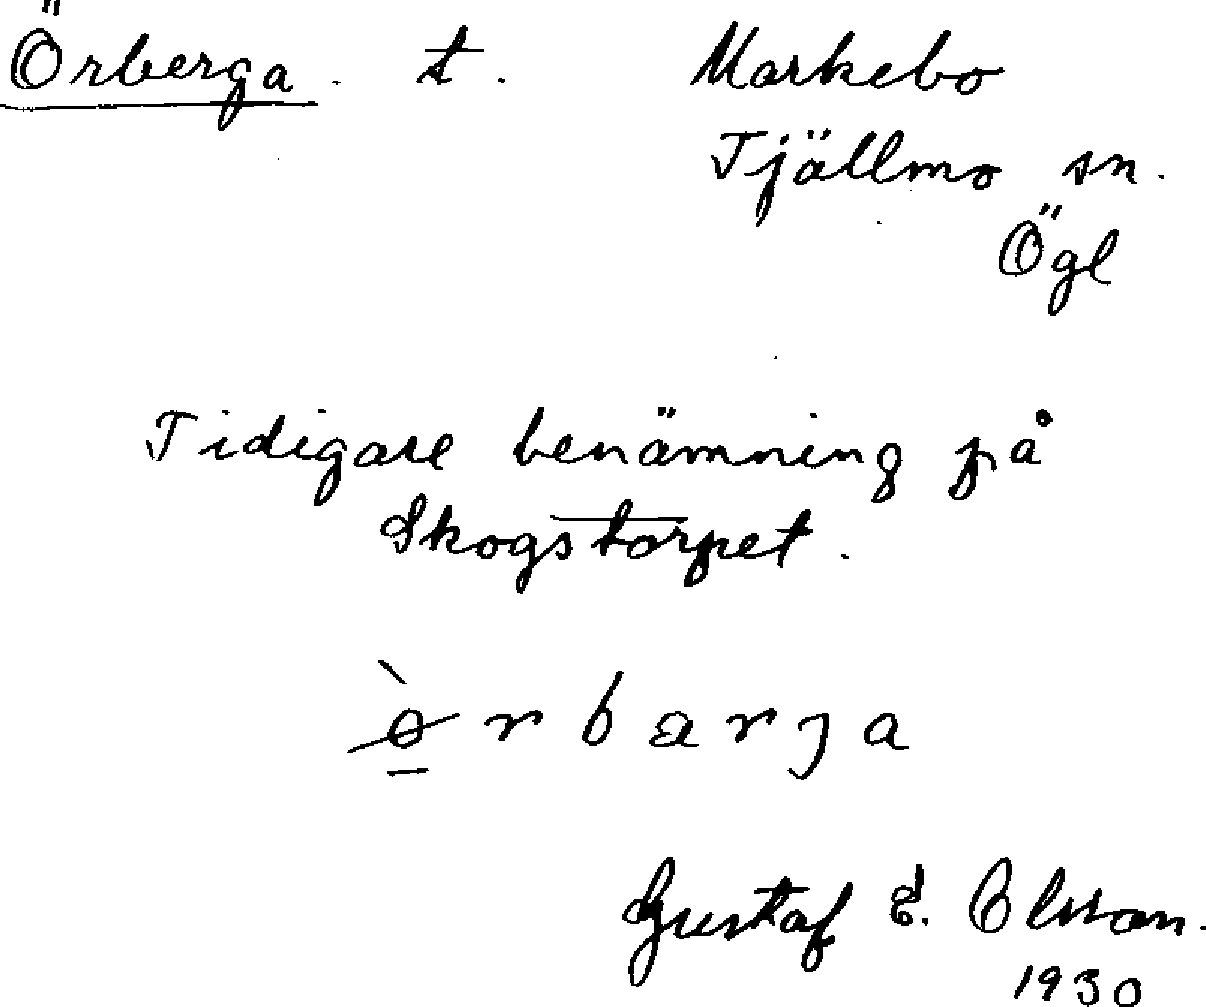 Örberga. t. Markebo
Tjällmo sn.
Ögl
Tidigare benämning på
Skogstorpet.
ø̠̀rbarja
Gustaf E. Olsson.
1930